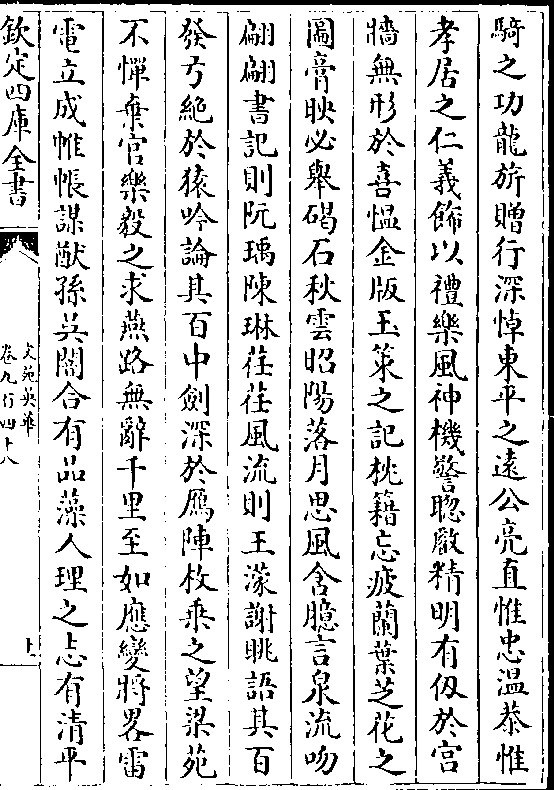 騎之功龍旂贈行深悼東平之遠公亮直惟忠温恭惟
孝居之仁義飾以禮樂風神機警聰敏精明有仭於宮
牆無形於喜愠金版玉策之記桃籍忘疲蘭葉芝花之
圖膏映必舉碣石秋雲昭陽落月思風含臆言泉流吻
翩翩書記則阮瑀陳琳荏荏風流則王濛謝眺語其百
發弓絶於猿吟論其百中劍深於鴈陣枚乗之望梁苑
不憚棄官樂毅之求燕路無辭千里至如應變將畧雷
電立成帷帳謀猷孫吳闇合有品藻人理之志有清平
欽定四庫全書
文苑英華
卷九百四十八
上